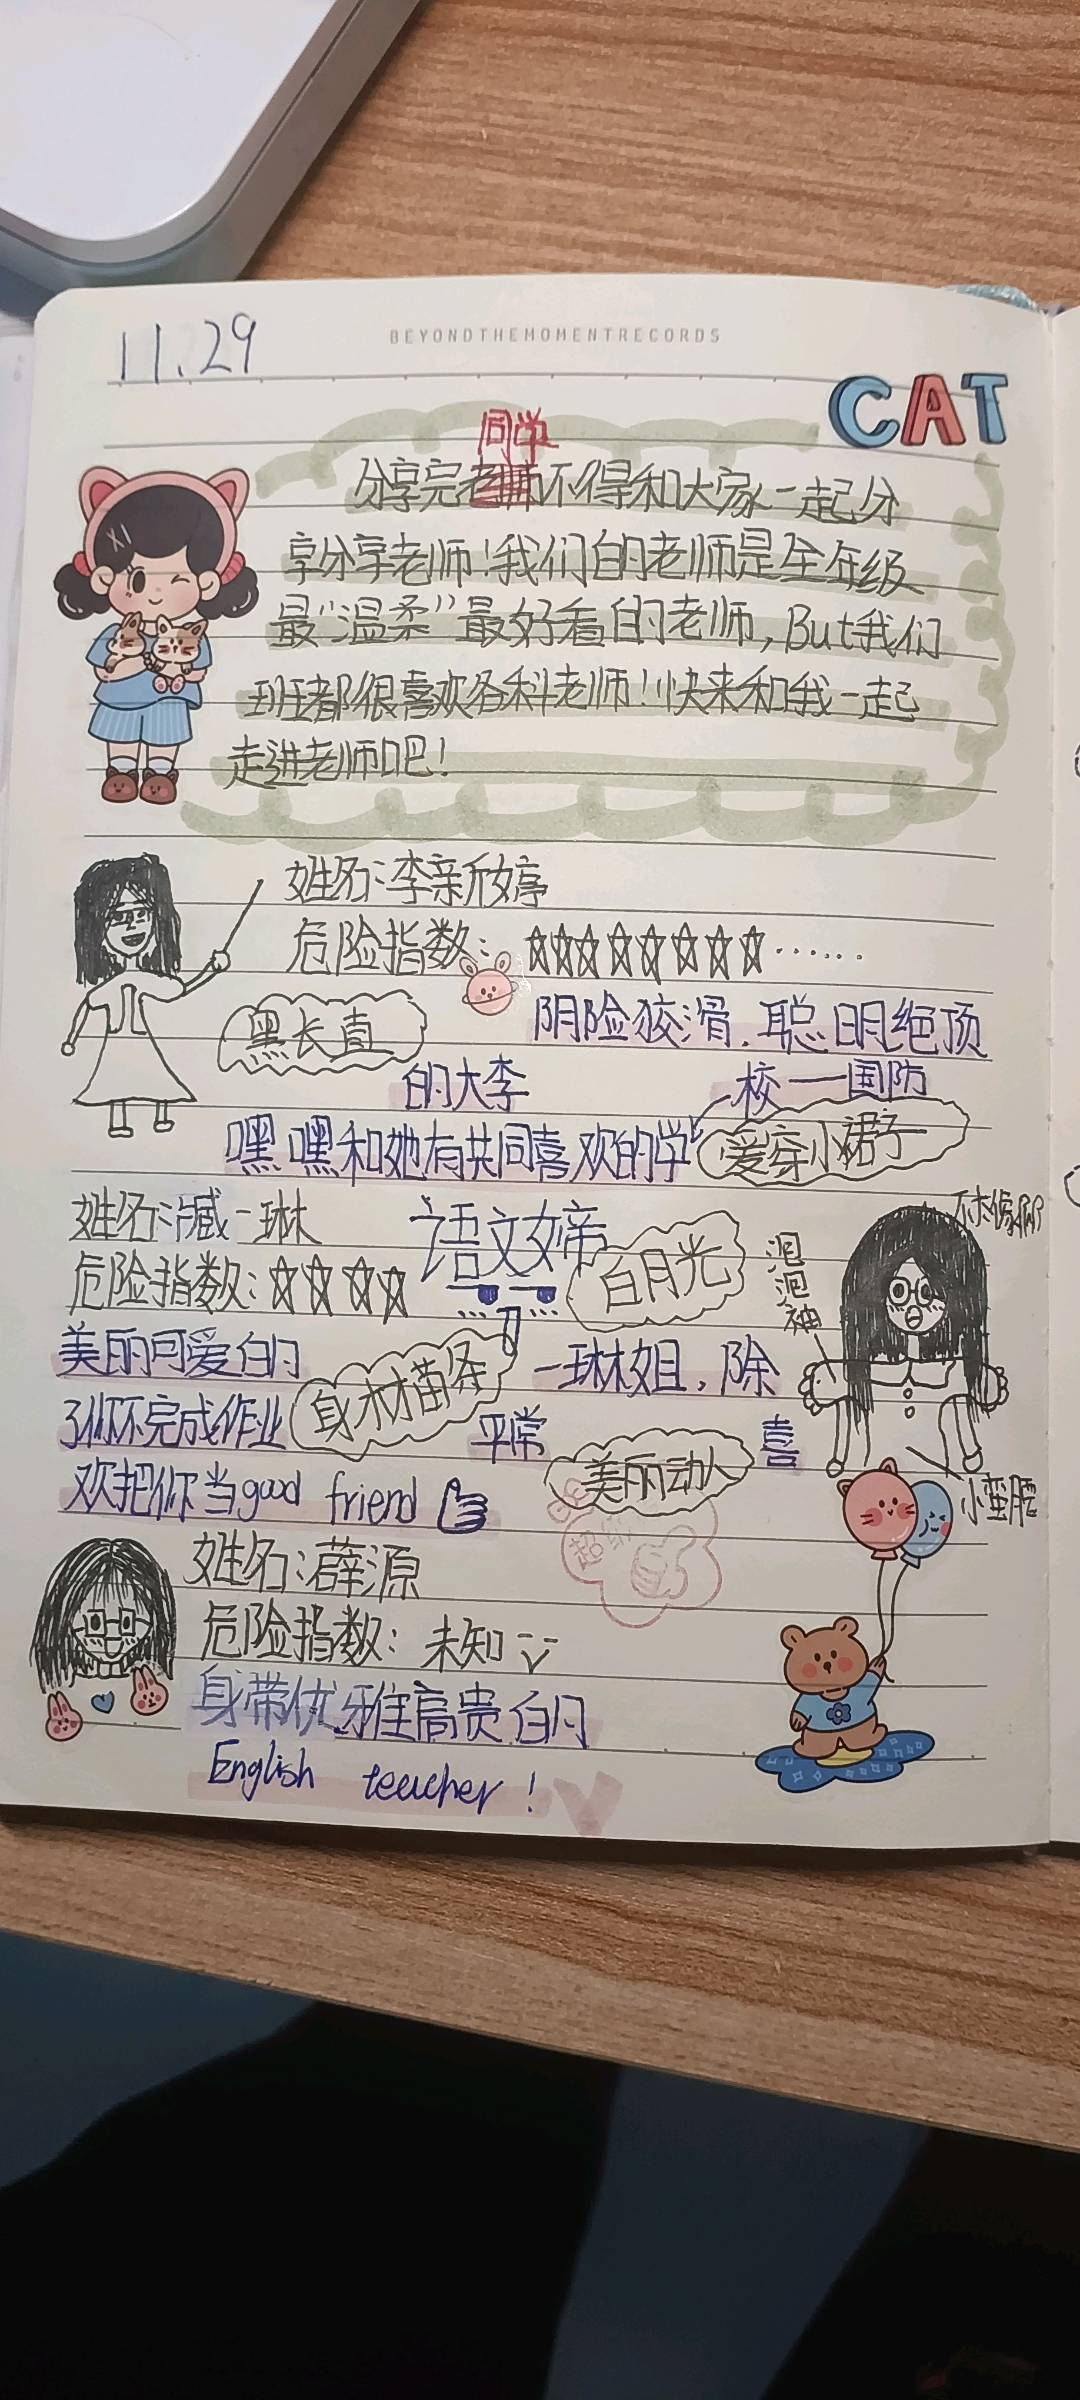 11.29
BEYONDTHEMOMENTRECORDS
CAT
同学
分享完老师不得和大家一起分
享分享老师！我们的老师是全年级
最“温柔”最好看的老师，But我们
班都很喜欢各科老师！快来和我一起
走进老师吧！
姓名：李新婷
危险指数：☆☆☆☆☆☆☆☆……
黑长直
阴险狡滑．聪明绝顶
的大李
校——国防
嘿嘿和她有共同喜欢的学
爱穿小裙子
姓名：臧一琳
语文女帝
白月光
危险指数：☆☆☆☆
泡泡袖
美丽可爱的
身材苗条
一琳姐，除
了你不完成作业
平常
喜
美丽动人
欢把你当good friend
小蛮腰
超级
姓名：薛源
危险指数：未知
身带优雅高贵的
English teacher！